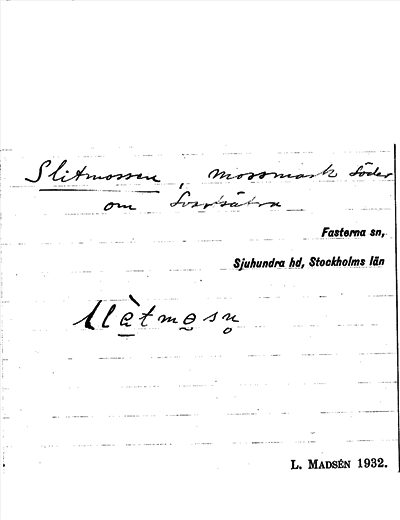 Slitmossen, mossmark söder
om Svartsätra
Fasterna sn,
Sjuhundra hd, Stockholms län
L. MADSÉN 1932.